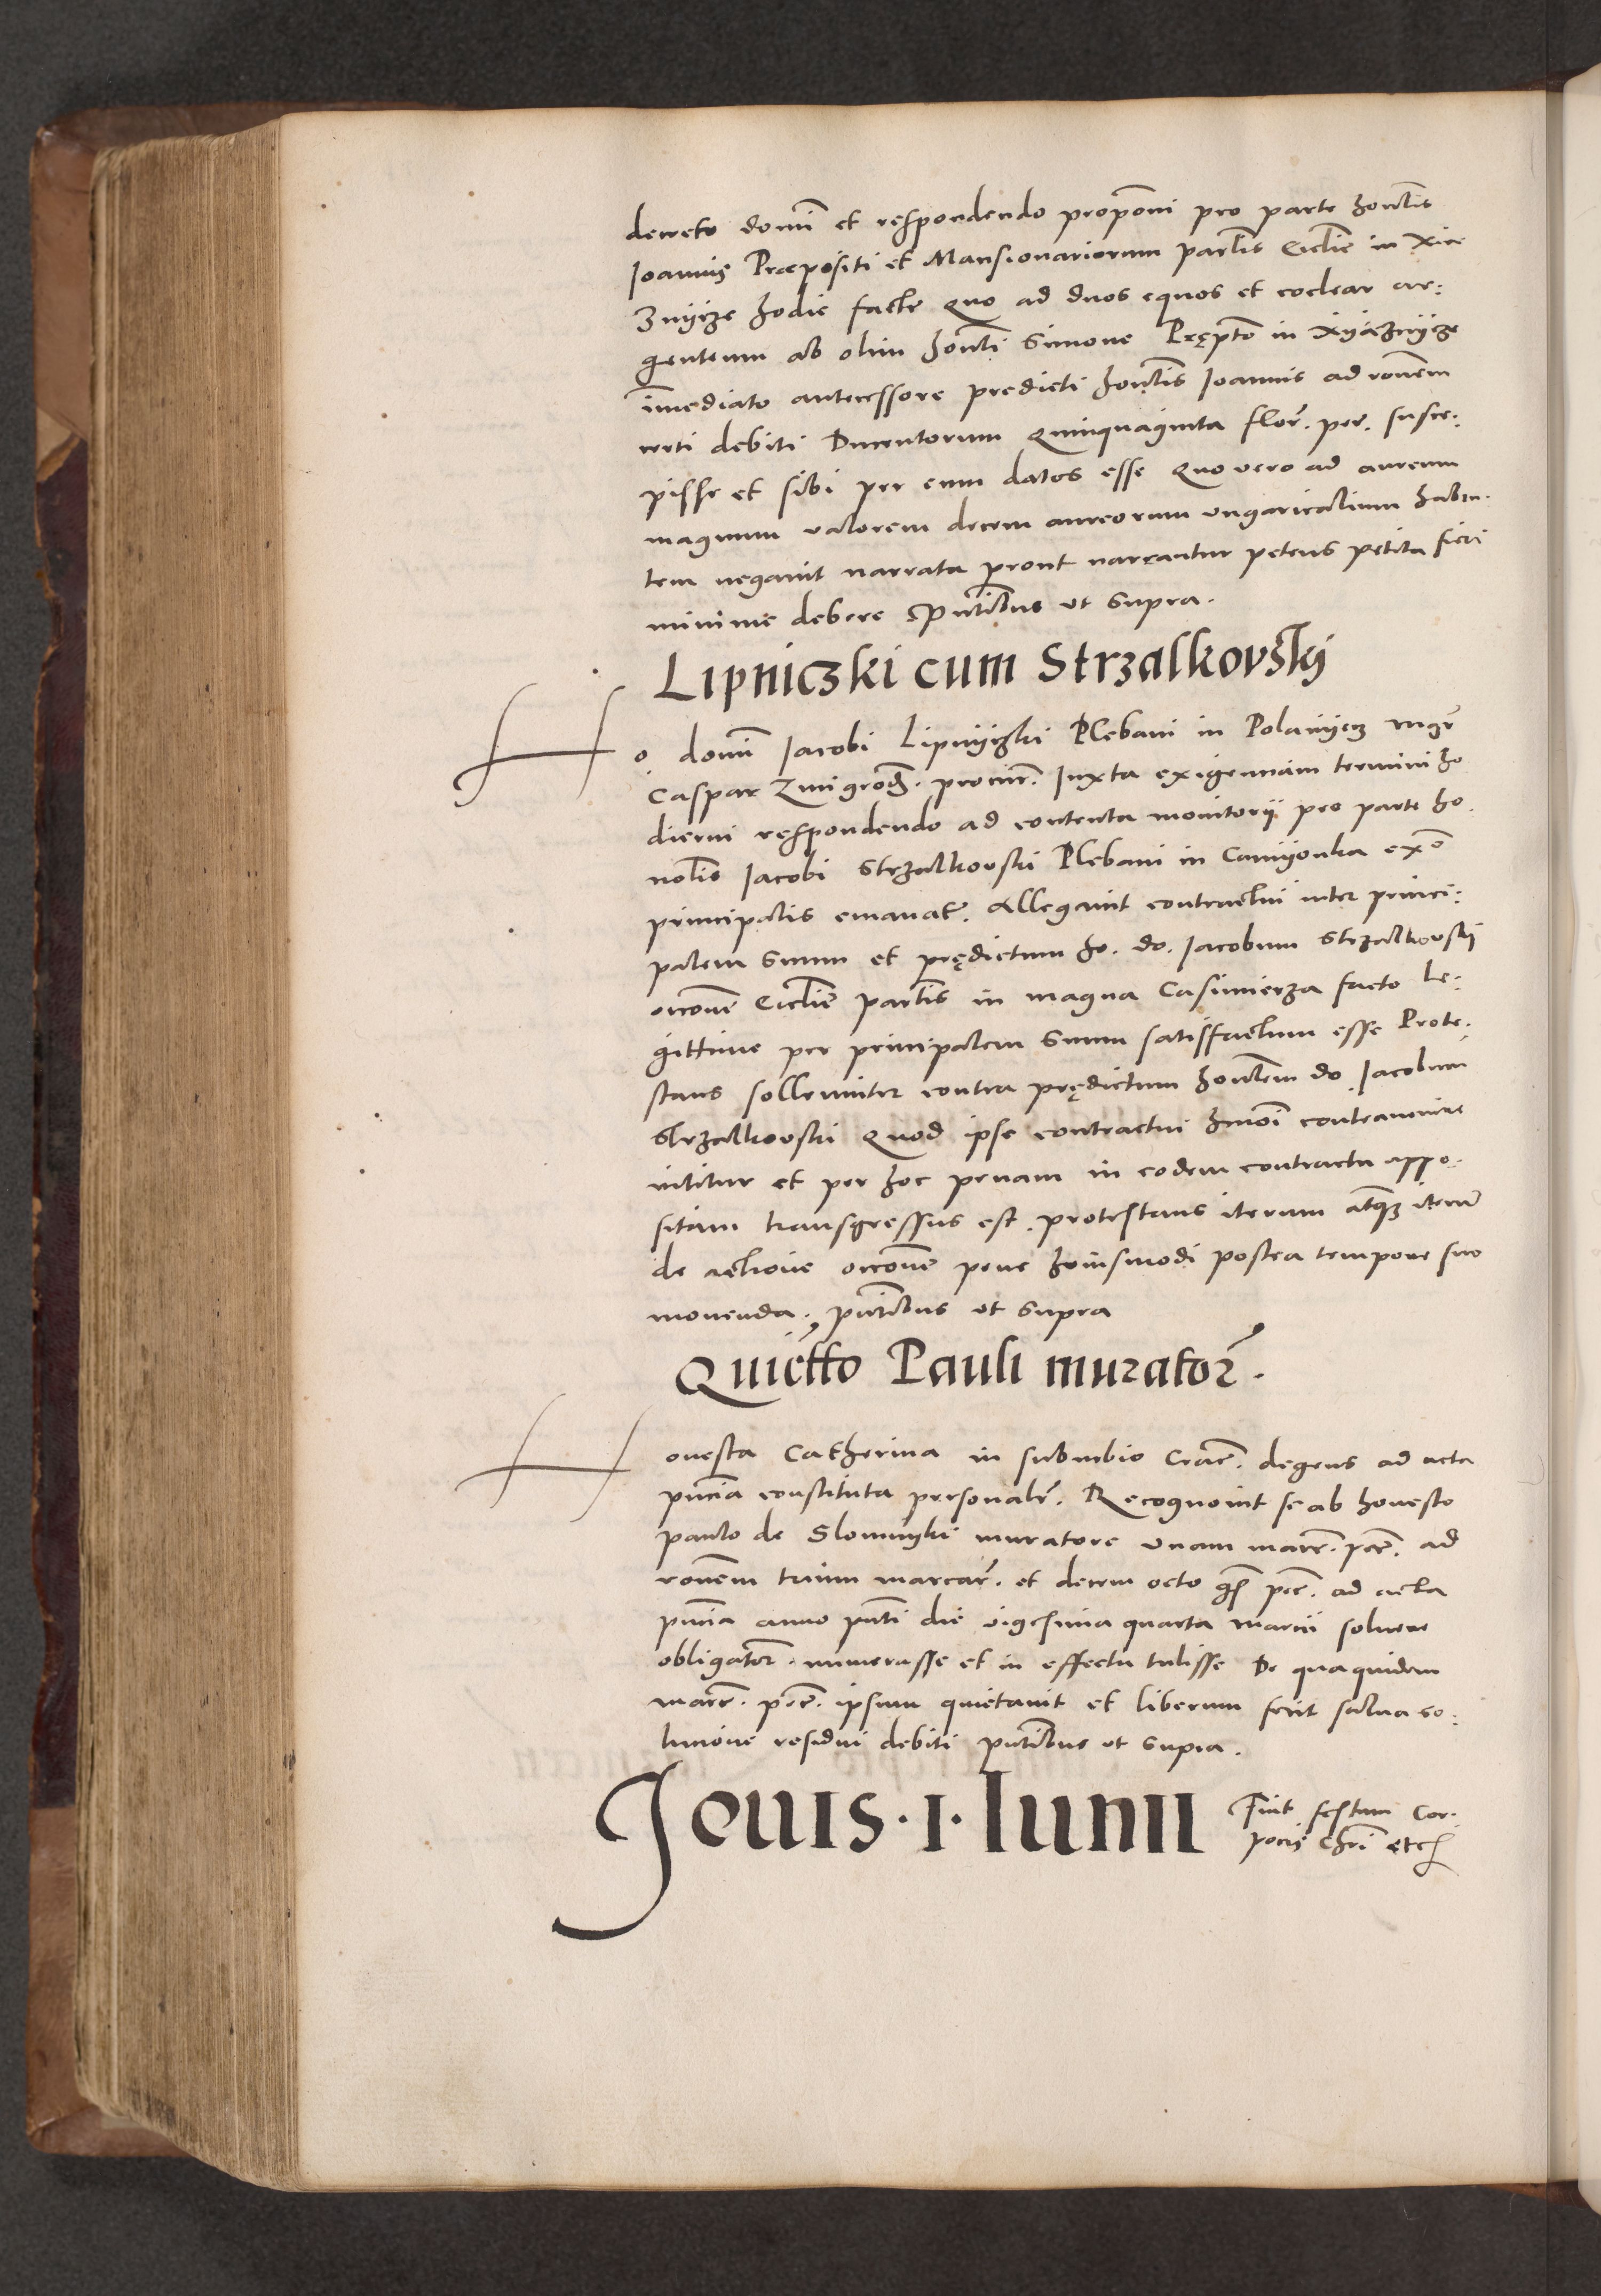 decreto domĩ et respondendo propõni pro parte hontis
Joannis Præpositi et Mansionariorum parłis Ecclie in Xia
znycze hodie facte Quo ad duos equos et coclear ar:
genteum ab olim honłi Simone Pręptõ in Xyaznycze
ĩmediato antecessore predicti honłis Joannis ad rõnem
certi debiti Ducentorum Quinquaginta flor̃. per. susce:
pisse et sibi per eum datos esse Quo vero ad aureum
magnum valorem decem aureorum ungaricalium haben.
tem negavit narrata prout narrantur petens petita fieri
minime debere Pñtibus ut supra.
Lipniczki cum Strzalkovsky
Ho. domĩ Jacobi Lipnyczki Plebani in Polanyecz mgr̃
Caspar Zmigrod. procur̃. Juxta exigenciam termini ho
dierni respondendo ad contenta monitorii pro parte ho.
norłis Jacobi Strzalkovski Plebani in Camyonka ex°
principalis emanať. Allegavit contractui inter princi:
palem suum et prędictum ho. do. Jacobum Strzalkovskÿ
occõne Ecclie parłis in magna Casimierza facto le:
gittime per principalem suum satisfactum esse Prote:
stans sollemniter contra prędictum honłem do Jacobum
Strzalkovski Quod ipse contractui hmõi contravenire
nititur et per hoc penam in eodem contractu appo.
sitam transgressus est. protestans iterum atqz iterũ
de actione occõne pene hujusmodi postea tempore suo
movenda. pñtibus ut supra
Quietto Pauli murator̃.
Honesta Catherina in suburbio Crac̃. degens ad acta
pñcia constituta personalr̃. Recognovit se ab honesto
paulo de Slomnyki muratore unam marc̃. pec̃. ad
rõnem trium marcar̃. et decem octo gř pec̃. ad acta
pñcia anno pñti die vigesima quarta marcii solvere
obligator̃. numerasse et in effectu tulisse De qua quidem
marc̃. pec̃. ipsum quietavit et liberum fecit salva so:
lucione residui debiti pñtibus ut supra.
Jovis · 1 · Iunii
Fuit festum Cor.
poris Chri etc